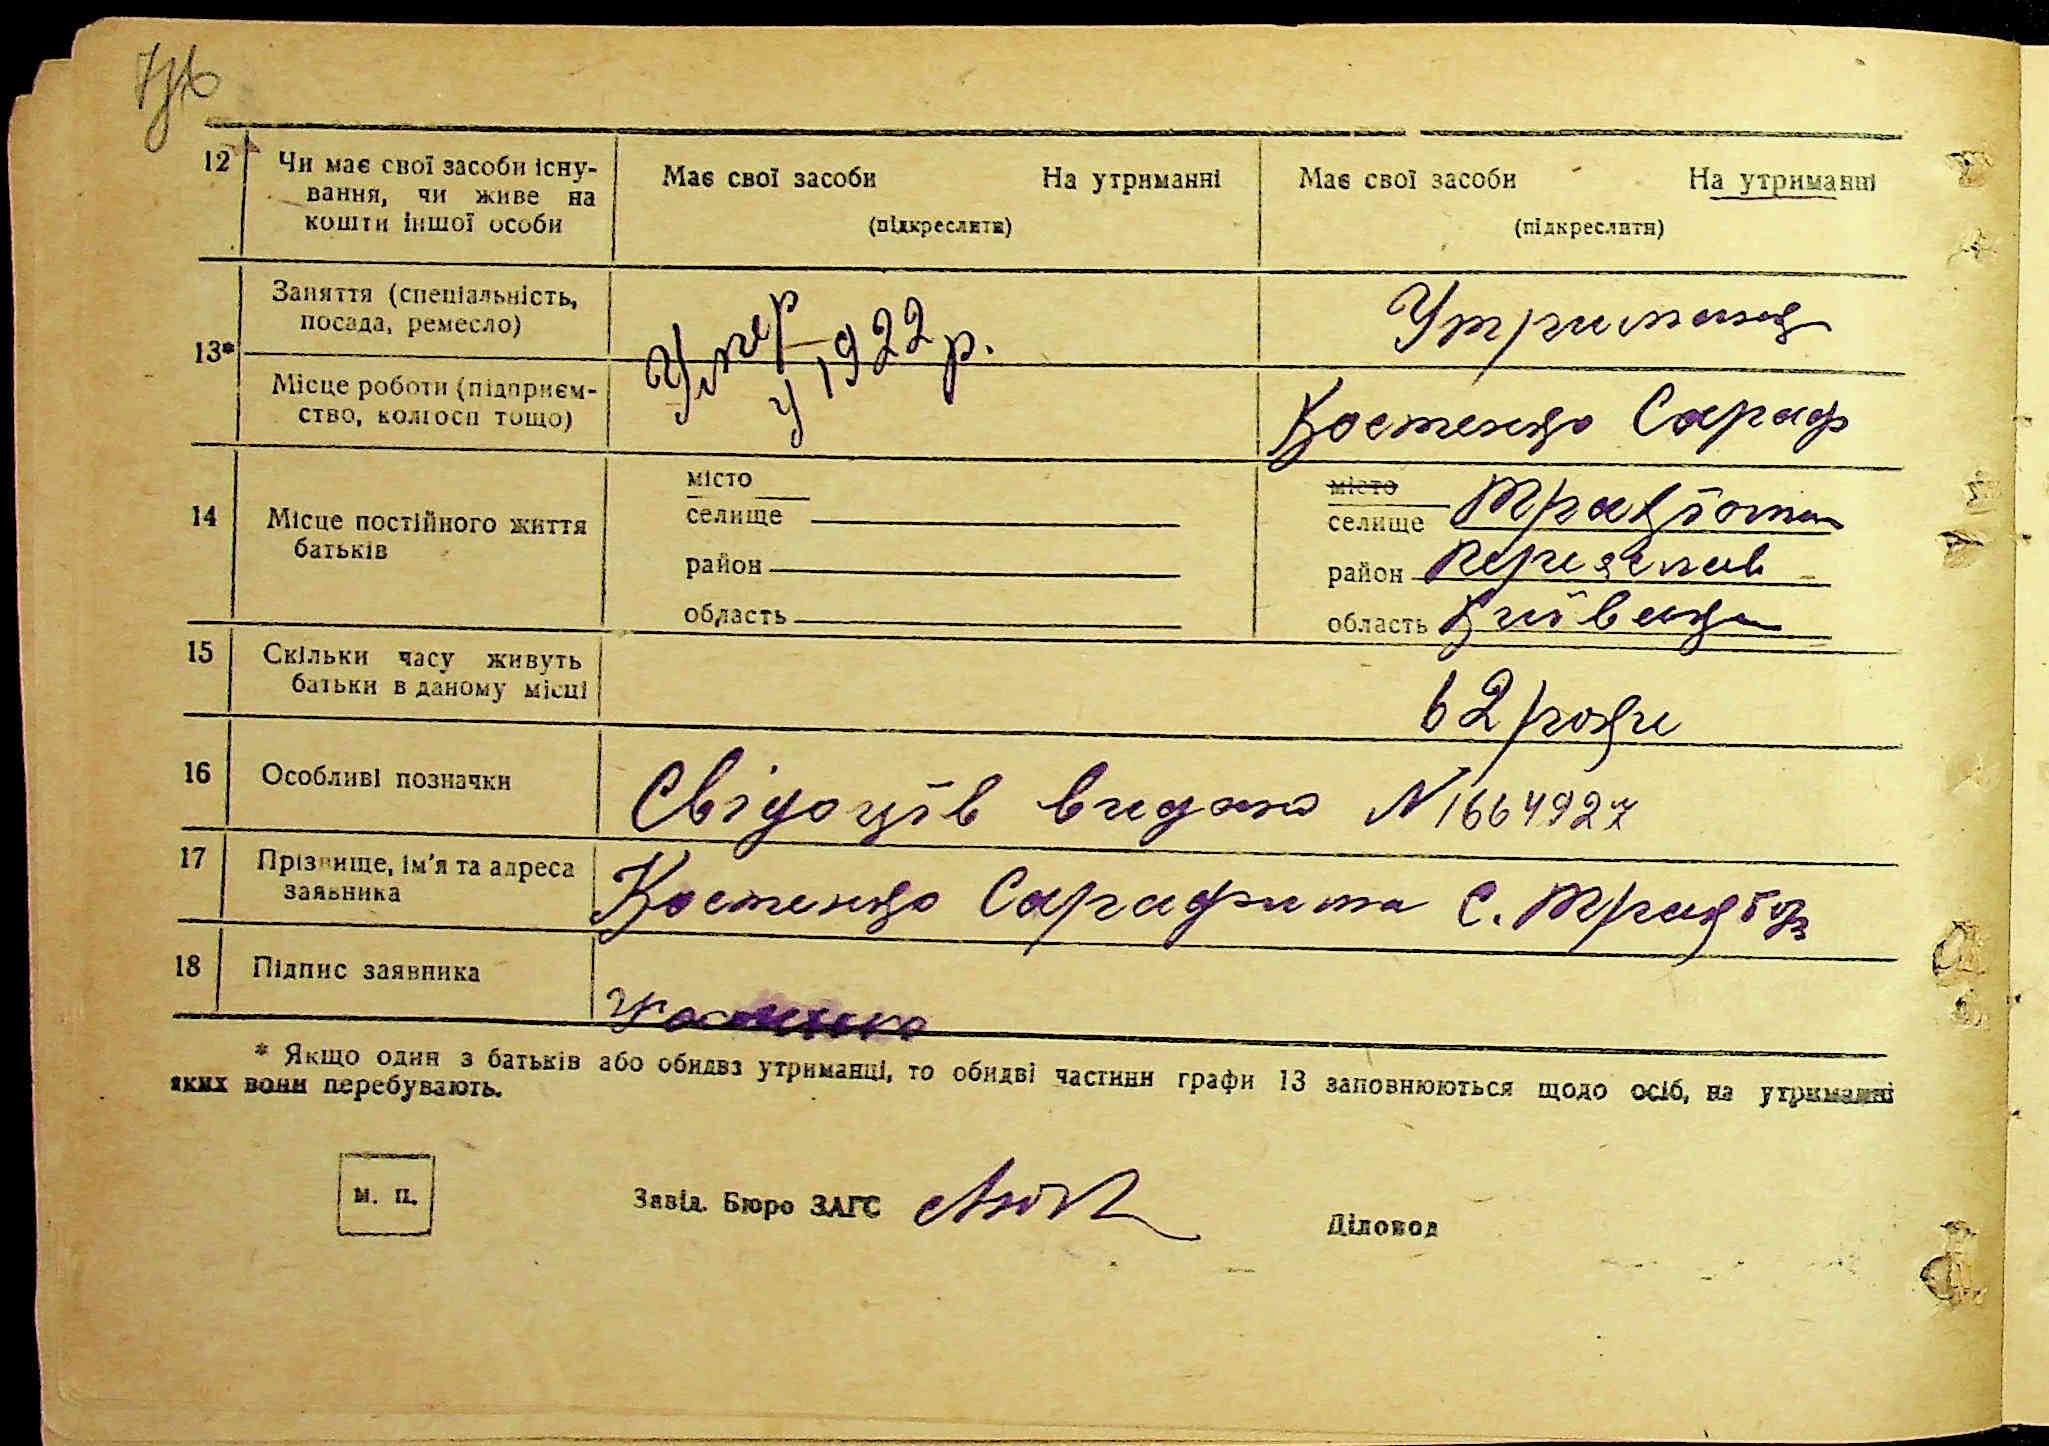 12 Чи має свої засоби існу-
вання, чи живе на
кошти іншої особи
Має свої засоби На утриманні
(підкреслити)
Має свої засоби На утриманні
(підкреслити)
13* Заняття (спеціальність,
посада, ремесло)
Умер
у 1922 р.
Утриманец
Місце роботи (підприєм-
ство, колгосп тощо)
Костенко Сараф
14 Місце постійного життя
батьків
місто
селище
район
область
місто
селище
район Переяслав
область Київська
15 Скільки часу живуть
батьки в даному місці
62 роки
16 Особливі позначки
Свідоцтв видано N 1664927
17 Прізвище, ім'я та адреса
заявника
Костенко Сарафима с.
18 Підпис заявника
Костенко
* Якщо один з батьків або обидва утриманці, то обидві частини графи 13 заповнюються щодо осіб, на утриманні
яких вони перебувають.
м. п.
Завід. Бюро ЗАГС
Діловод